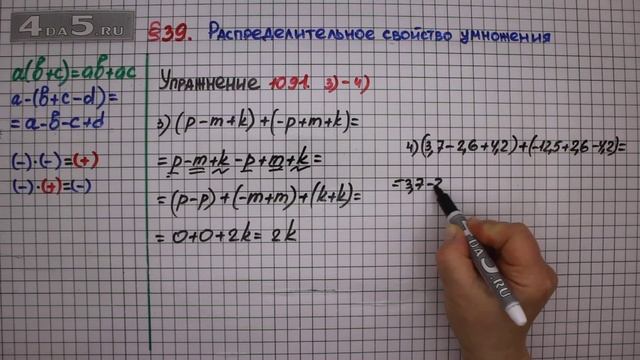 4DA5.RU
§39. Распределительное свойство умножения
a(b+c)=ab+ac
a-(b+c-d)=
=a-b-c+d
(-)·(-)=(+)
(-)·(+)=(-)
Упражнение 1091. 3)-4)
3) (p-m+k)+(-p+m+k)=
=p-m+k-p+m+k=
=(p-p)+(-m+m)+(k+k)=
=0+0+2k=2k
4) (3,7-2,6+4,2)+(-12,5+2,6-4,2)=
=3,7-2
4DA5.RU